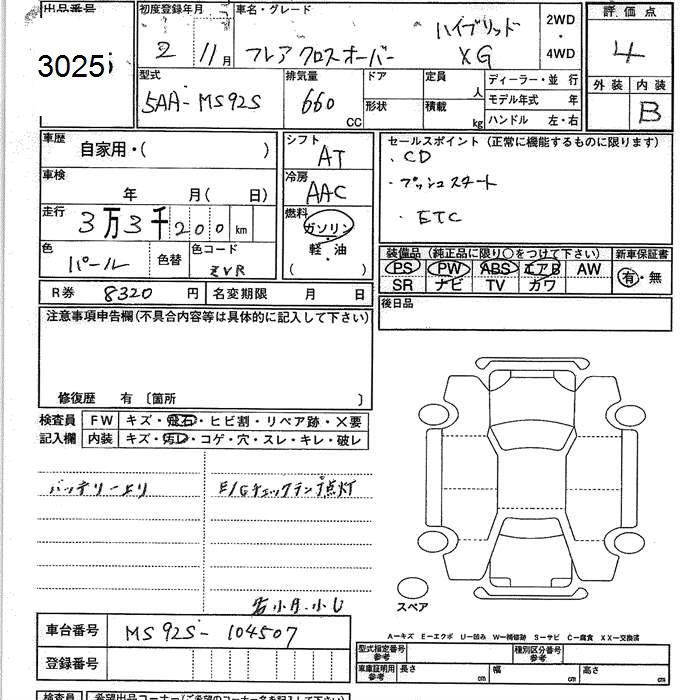 出品番号 初度登録年月 車名・グレード 評価点
3025 2 11月 フレア クロスオーバー ハイブリッド XG 2WD・4WD 4
型式 排気量 ドア 定員 人 ディーラー・並行 外装 内装
5AA-MS92S 660 CC 形状 積載 kg モデル年式 年 B
ハンドル 左・右
車歴 自家用・( ) シフト AT セールスポイント(正常に機能するものに限ります)
・CD
車検 年 月( 日) 冷房 AAC ・プッシュスタート
走行 3万3千200km 燃料 ガソリン・軽・油 ( ) ・ETC
色 パール 色替 色コード ZVR 装備品(純正品に限り○をつけて下さい) 新車保証書
PS PW ABS エアB AW 有・無
SR ナビ TV カワ
R券 8320円 名変期限 月 日 後日品
注意事項申告欄(不具合内容等は具体的に記入して下さい)
修復歴 有 〔箇所 〕
検査員 FW キズ・飛石・ヒビ割・リペア跡・×要
記入欄 内装 キズ・汚レ・コゲ・穴・スレ・キレ・破レ
バッテリー上り E/Gチェックランプ点灯
スペア
車台番号 MS92S-104507
A−キズ E−エクボ U−凹み W−補修跡 S−サビ C−腐食 XX−交換済
登録番号 型式指定番号 参考 種別区分番号 参考
車庫証明用 参考 長さ cm 幅 cm 高さ cm
検査員 希望出品コーナー(ご希望のコーナー名を記入して下さい)